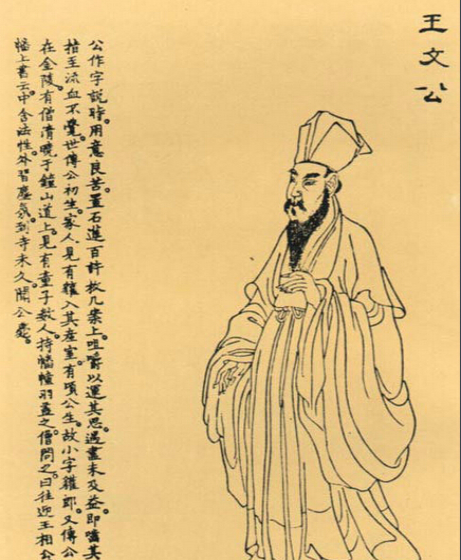 王文公
公作字說時。用意良苦。置石蓮百許枚几案上。咀嚼以運其思。遇盡未及益。即嚙其
指至流血不覺。世傳公初生。家人見有獾入其產室。有頃公生。故小字獾郎。又傳公
在金陵。有僧清曉于鐘山道上。見有童子數人。持幡幢羽蓋之。僧問之。曰往迎王相公
幡上書云。中含法性。外習塵氛。到寺未久聞公薨。